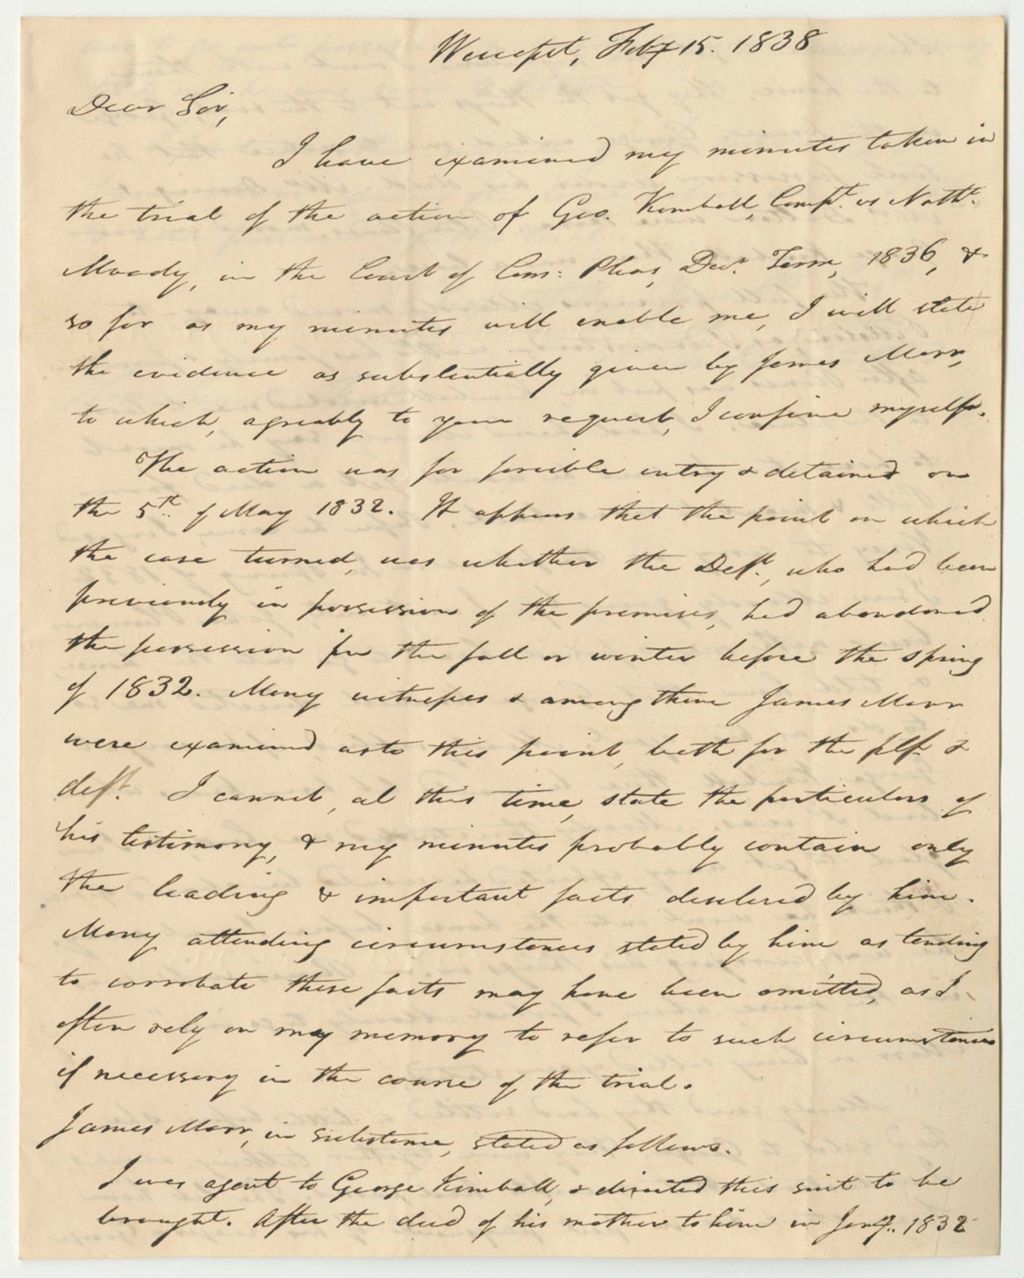 Wiscasset, Feby 15. 1838
Dear Sir,
I have examined my minutes taken in
the trial of the action of Geo. Kimball, Compt. vs Nathl.
Moody, in the Court of Com: Pleas, Decr. Term, 1836, &
so far as my minutes will enable me, I will state
the evidence as substantially given by James Marr,
to which, agreably to your request, I confine myself.
The action was for forcible entry & detained on
the 5th of May 1832. It appears that the point on which
the case turned, was whether the Deft., who had been
previously in possession of the premises, had abandoned
the possession in the fall or winter before the spring
of 1832. Many witnesses & among them James Marr
were examined as to this point, both for the plf. &
deft. I cannot, at this time, state the particulars of
his testimony, & my minutes probably contain only
the leading & important facts disclosed by him.
Many attending circumstances stated by him as tending
to corrobate these facts may have been omitted, as I
often rely on my memory to refer to such circumstances
if necessary in the course of the trial.
James Marr, in substance, stated as follows.
I was agent to George Kimball, & directed this suit to be
brought. After the deed of his mother to him in Jany. 1832